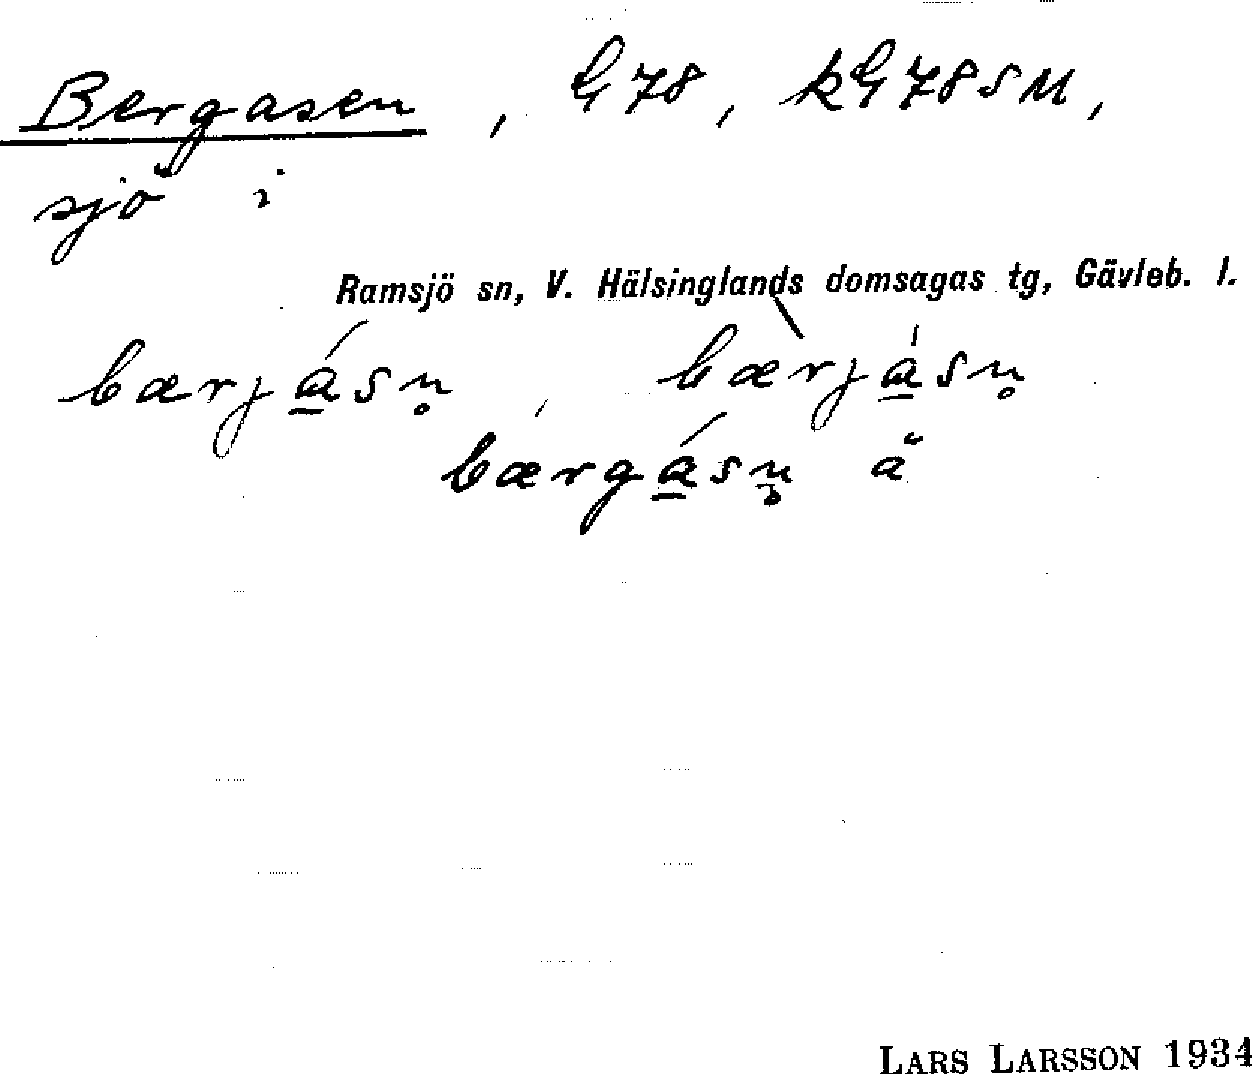 Bergasen, G 78, kG 78 SM,
sjö i
Ramsjö sn, V. Hälsinglands domsagas tg, Gävleb. l.
bærjásn̥, bærjásn̥
bærgásn̥ ä
LARS LARSSON 1934